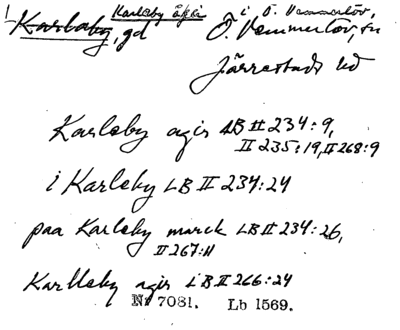 1) Karleby åker i Ö. Vemmerlöv,
Karlaby, gd Ö. Vemmerlöv, sn
Järrestads hd
Karleby agir LB II 234:9,
II 235:19, II 268:9
i Karleby LB II 234:24
paa Karleby marck LB II 234:26,
II 267:11
Karlleby agir LB II 266:24
Nr 7081. Lb 1569.